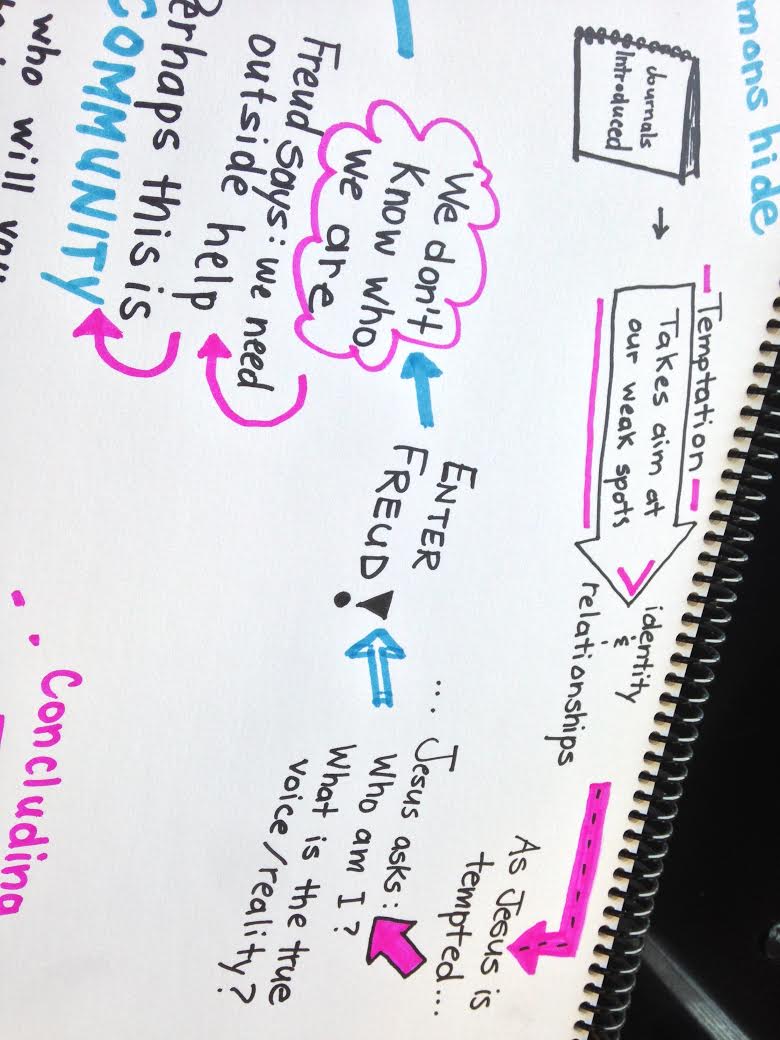 mons hide
Journals
Introduced
Temptation
Takes aim at
our weak spots
identity
&
relationships
As Jesus is
tempted...
... Jesus asks:
Who am I?
What is the true
voice/reality?
ENTER
FREUD!
We don't
know who
we are
Freud says: we need
outside help
Perhaps this is
COMMUNITY
who will you
Concluding